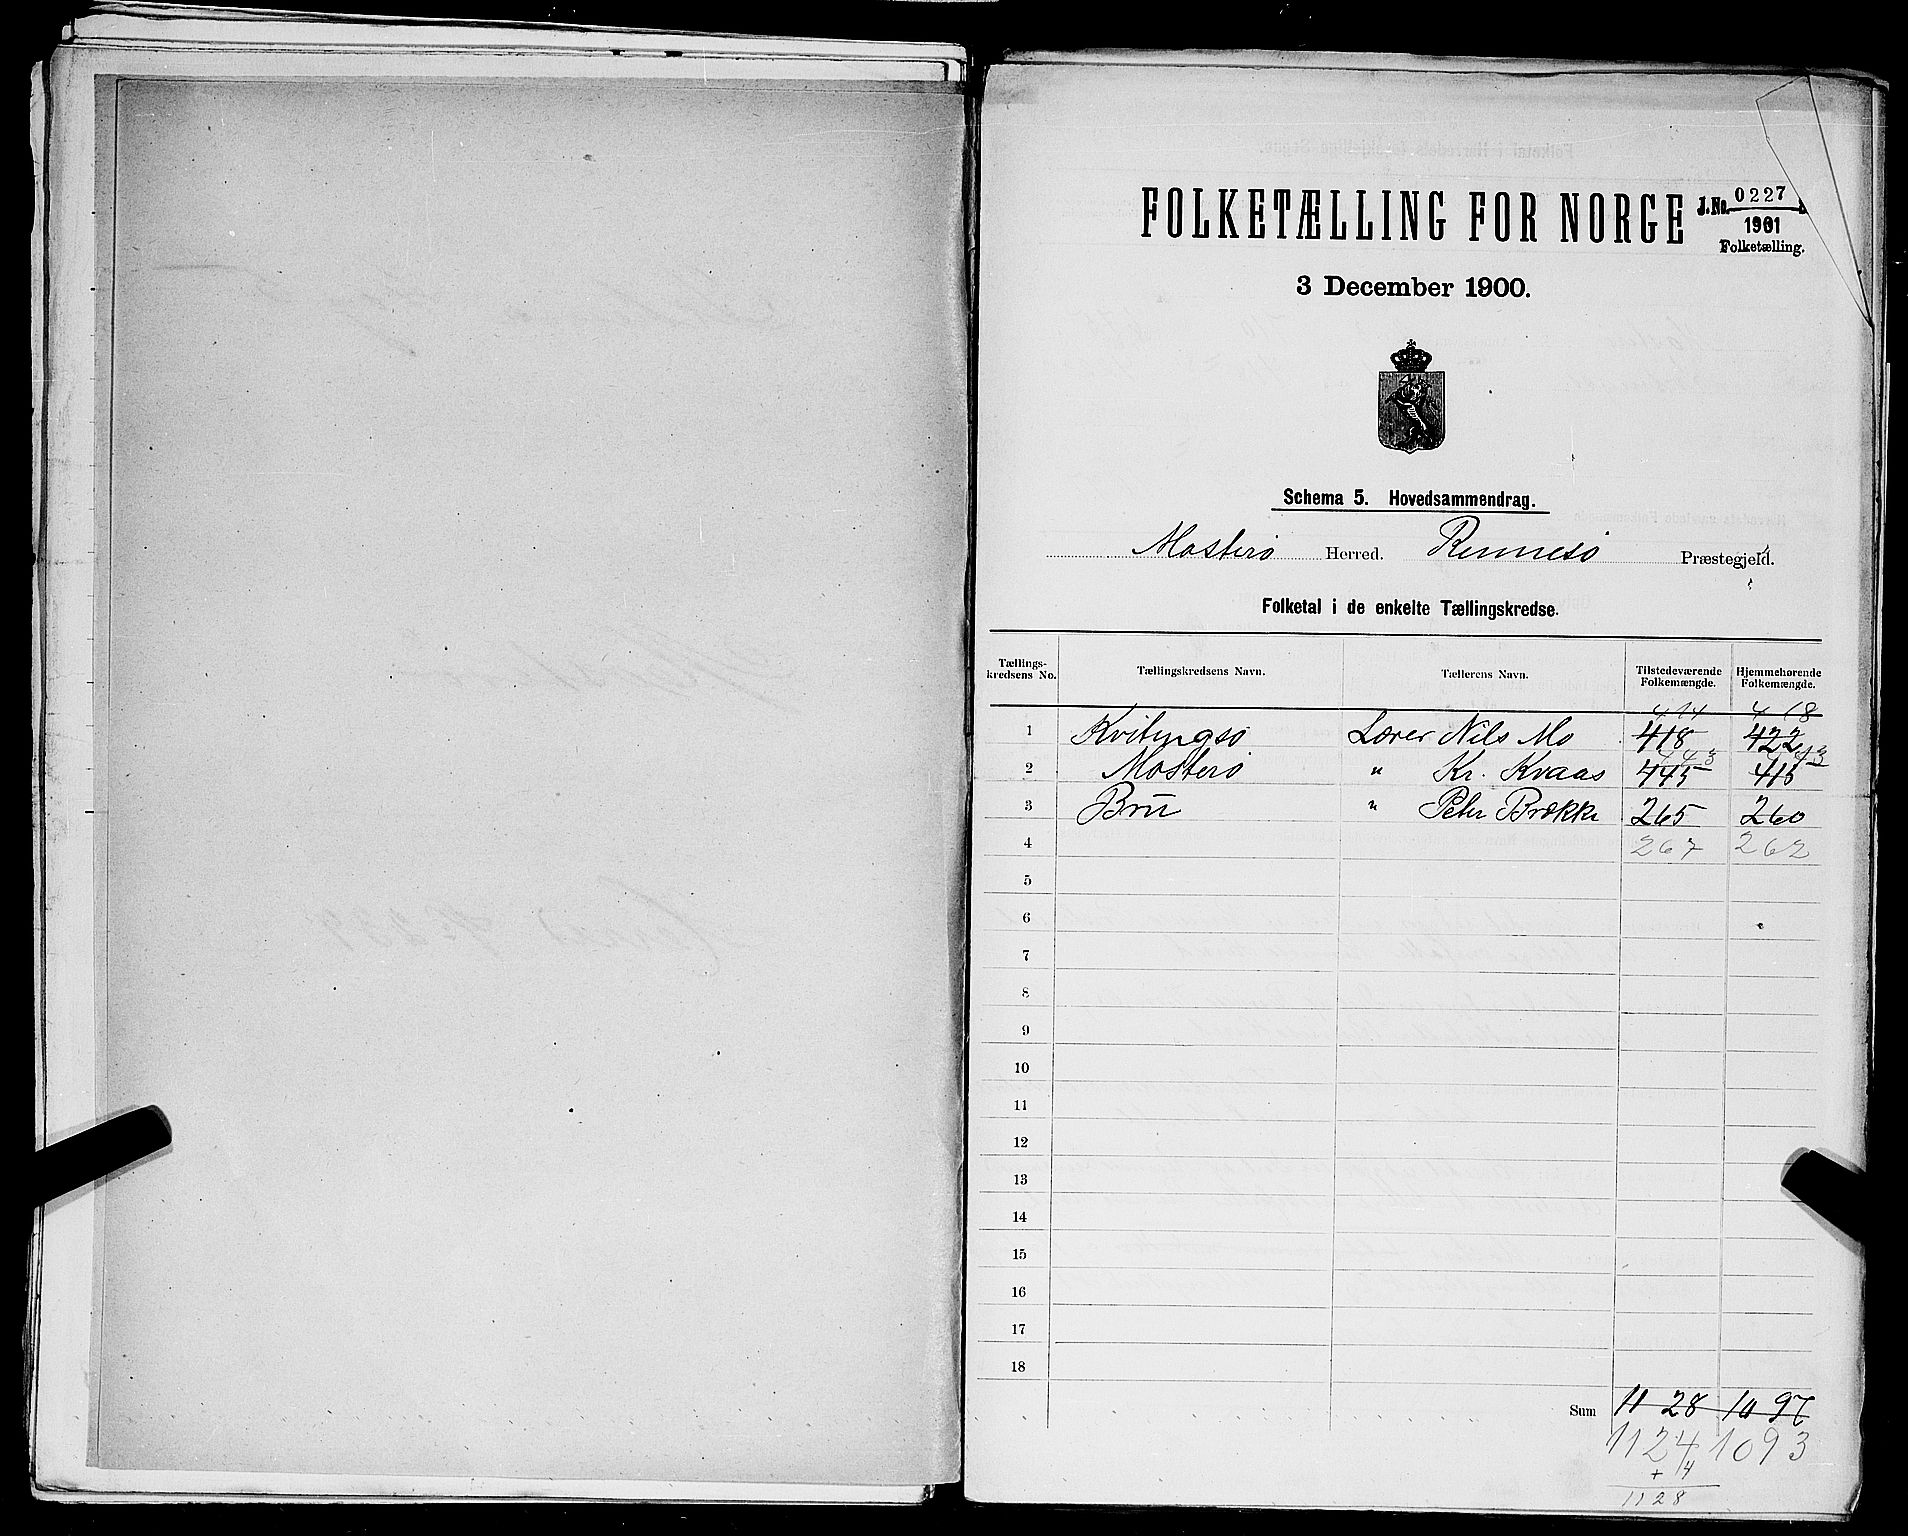 FOLKETÆLLING FOR NORGE
J. No. 0227
1901
Folketælling.
3 December 1900.
Schema 5. Hovedsammendrag.
Mosterø Herred. Rennesø Præstegjeld.
Folketal i de enkelte Tællingskredse.
Tællings-kredsens No. Tællingskredsens Navn. Tællerens Navn. Tilstedeværende Folkemængde. Hjemmehørende Folkemængde.
414 418
1 Kvitingsø Lærer Nils Mo 418 422
443 413
2 Mosterø " Kr. Kvaas 445 415
3 Bru " Peter Brække 265 260
4 267 262
5
6
7
8
9
10
11
12
13
14
15
16
17
18
Sum 1128 1097
1124 1093
+ 4
1128